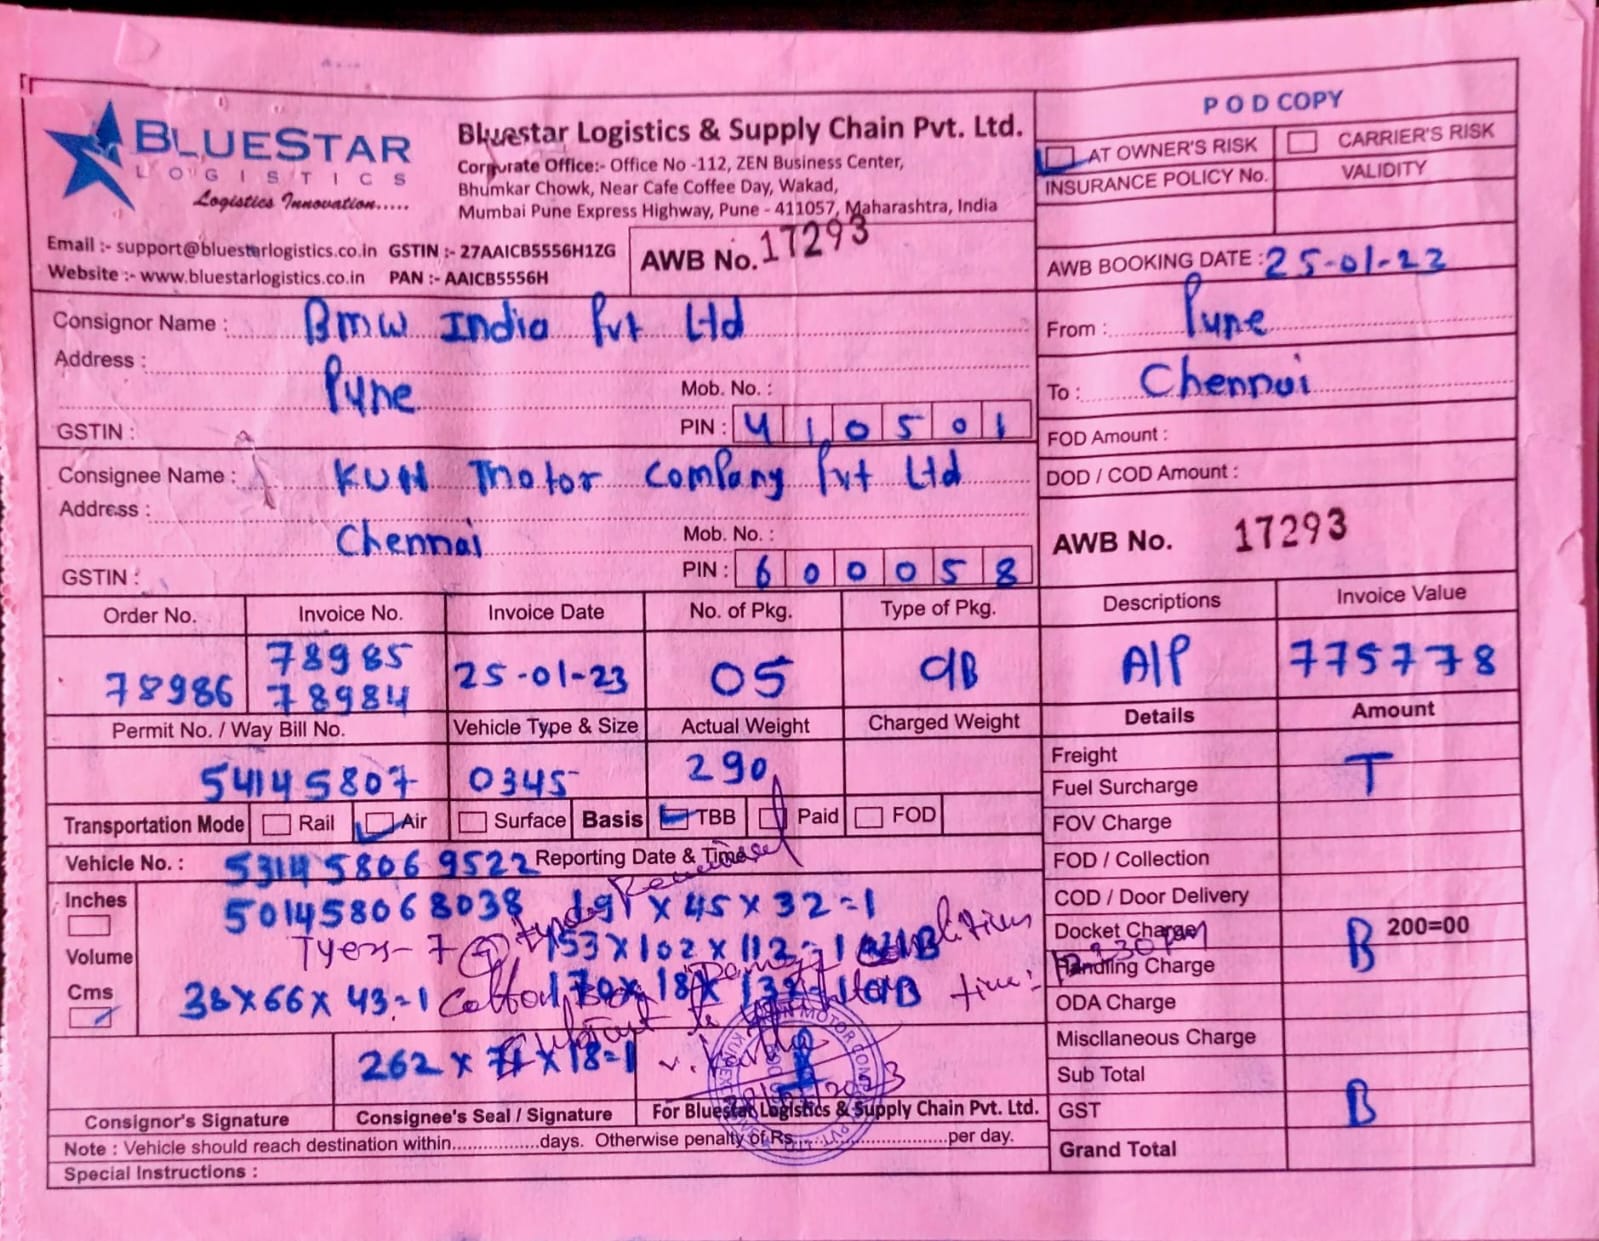 BLUESTAR
LOGISTICS
Logistics Innovation.....
Bluestar Logistics & Supply Chain Pvt. Ltd.
Corporate Office:- Office No -112, ZEN Business Center,
Bhumkar Chowk, Near Cafe Coffee Day, Wakad,
Mumbai Pune Express Highway, Pune - 411057, Maharashtra, India
Email :- support@bluestarlogistics.co.in GSTIN :- 27AAICB5556H1ZG
Website :- www.bluestarlogistics.co.in PAN :- AAICB5556H
AWB No. 17293
POD COPY
AT OWNER'S RISK CARRIER'S RISK
INSURANCE POLICY No. VALIDITY
AWB BOOKING DATE : 25-01-23
From : Pune
To : Chennai
FOD Amount :
DOD / COD Amount :
AWB No. 17293
Consignor Name : BMW India Pvt Ltd
Address :
Pune Mob. No. :
GSTIN : PIN : 410501
Consignee Name : KUN Motor Company Pvt Ltd
Address :
Chennai Mob. No. :
GSTIN : PIN : 600058
Order No. Invoice No. Invoice Date No. of Pkg. Type of Pkg. Descriptions Invoice Value
78985
78986 78984 25-01-23 05 CIB A/P 775778
Permit No. / Way Bill No. Vehicle Type & Size Actual Weight Charged Weight Details Amount
54145807 0345 290
Transportation Mode Rail Air Surface Basis TBB Paid FOD
Vehicle No. : 53145806 9522 Reporting Date & Time
Inches 501458068038 191 x 45 x 32 = 1
Tyers - 7 153 x 102 x 112 = 1
Volume
Cms 38 x 66 x 43 = 1
262 x 71 x 18 = 1
Freight T
Fuel Surcharge
FOV Charge
FOD / Collection
COD / Door Delivery
Docket Charge B 200=00
Handling Charge
ODA Charge
Miscllaneous Charge
Sub Total
GST B
Grand Total
Consignor's Signature Consignee's Seal / Signature For Bluestar Logistics & Supply Chain Pvt. Ltd.
Note : Vehicle should reach destination within................days. Otherwise penalty of Rs...........................per day.
Special Instructions :